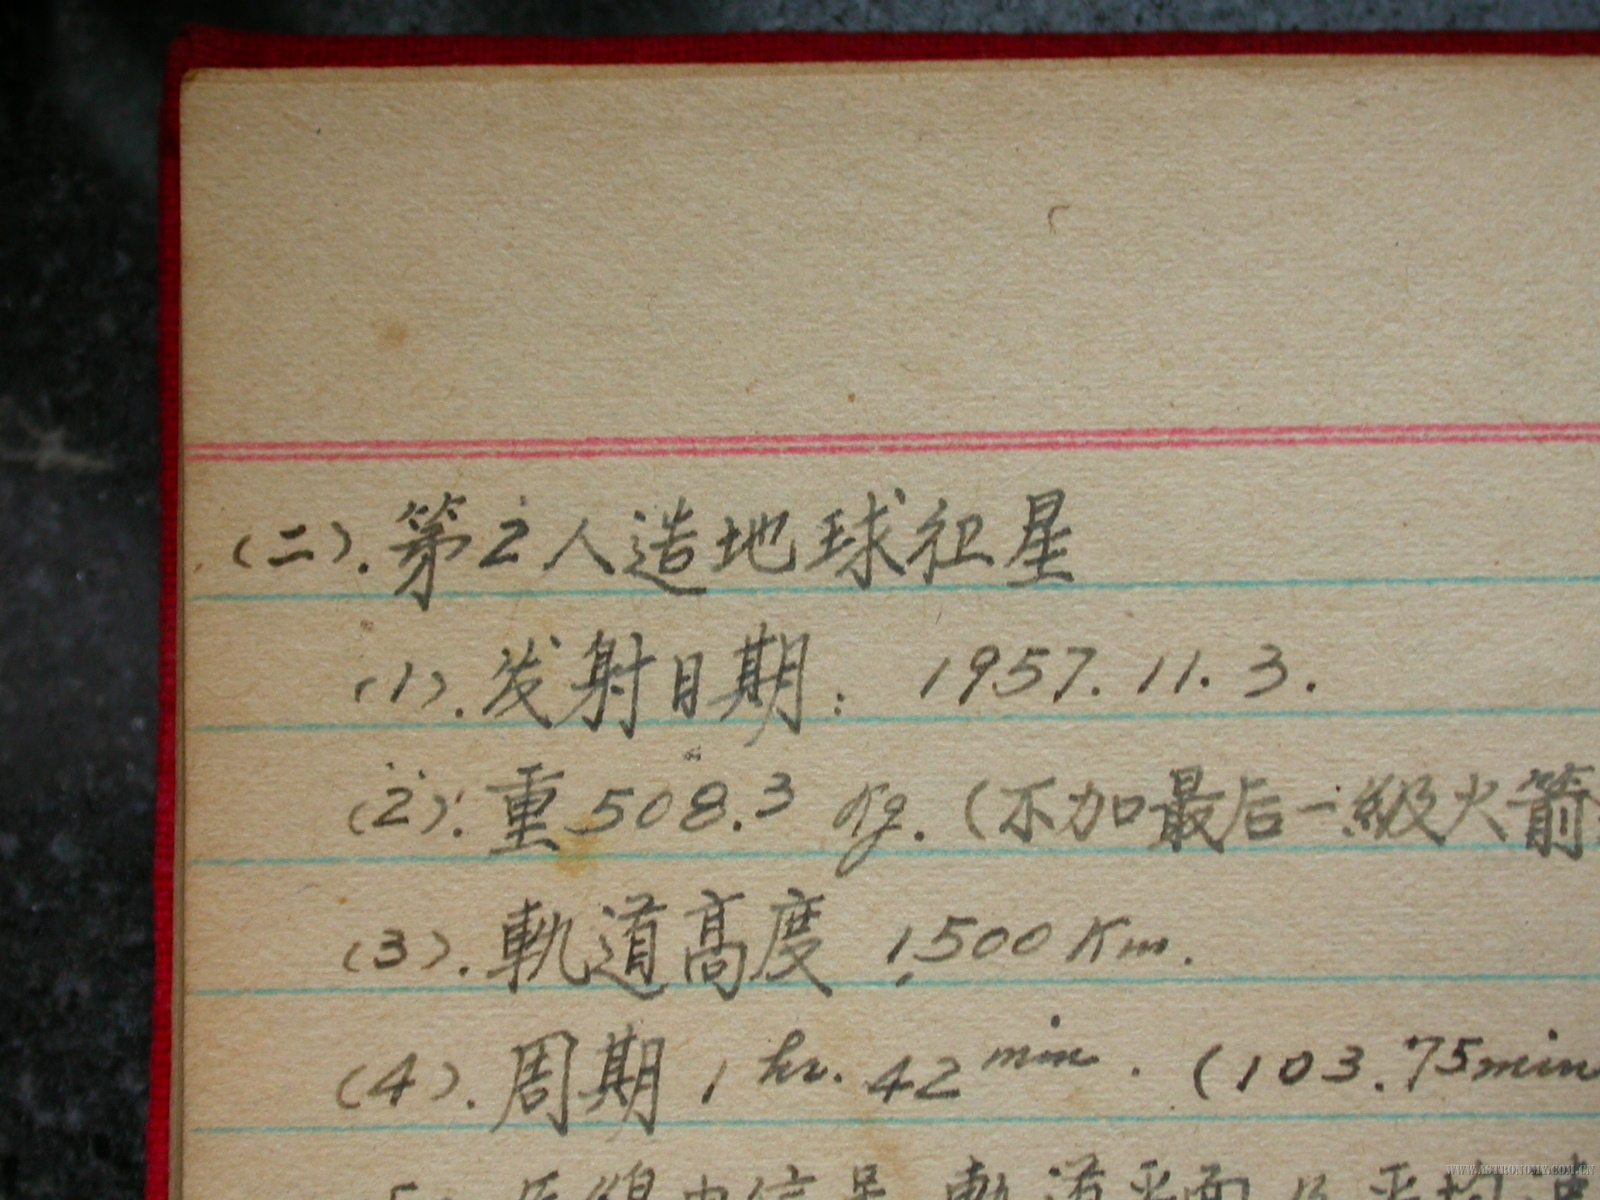 (二). 第2人造地球卫星
(1). 发射日期: 1957. 11. 3.
(2). 重 508.3 Kg. (不加最后一級火箭
(3). 軌道高度 1,500 Km.
(4). 周期 1 hr. 42 min. (103.75min
軌道平面
WWW.ASTRONOMY.COM.CN